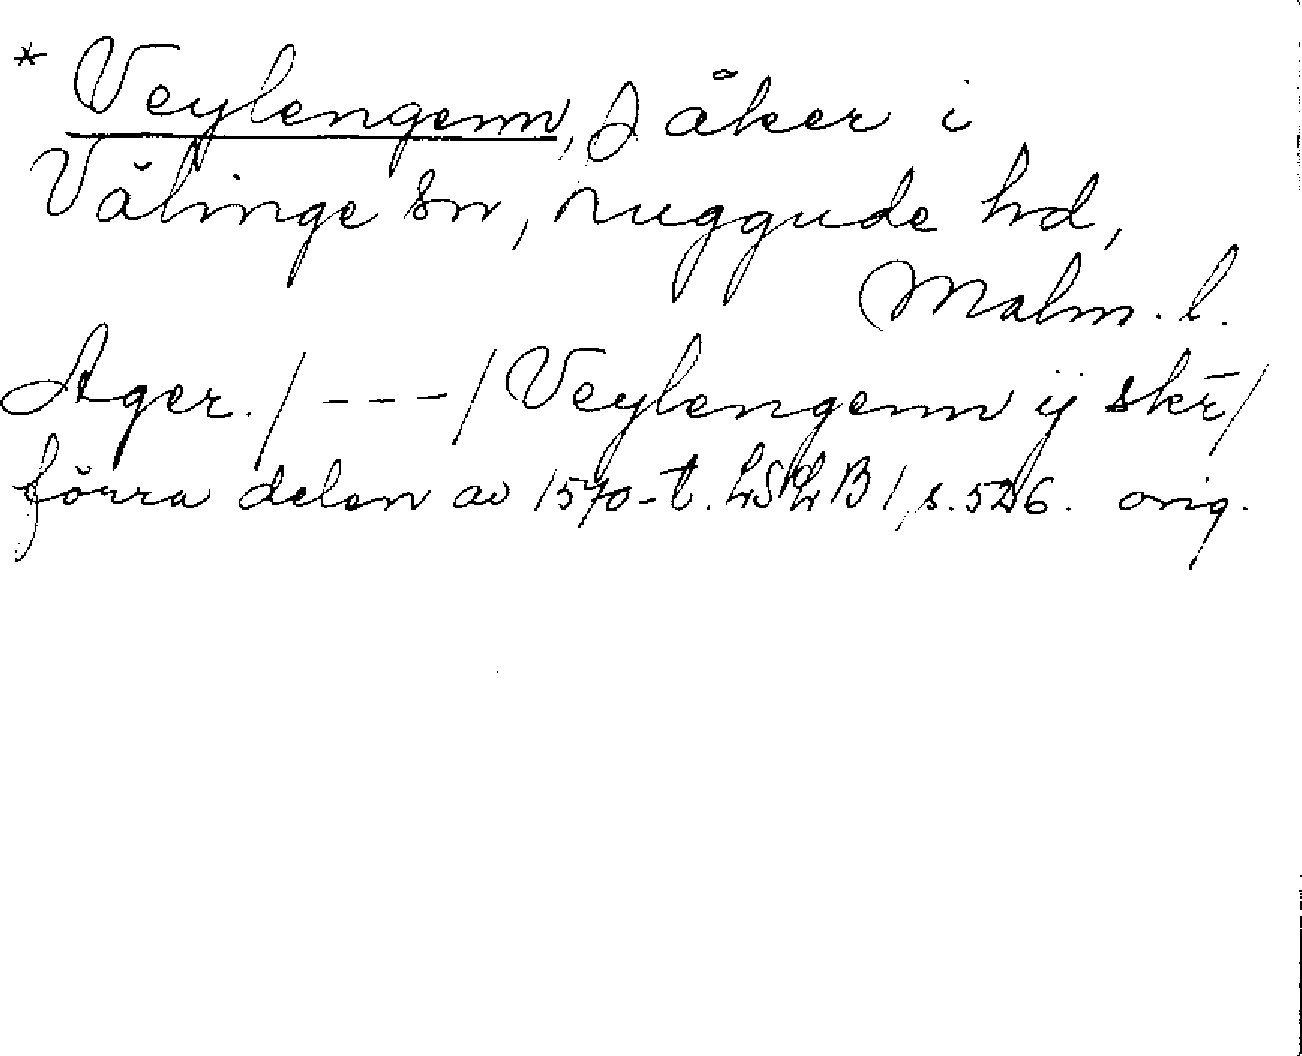 * Veylengenn, J. åker i
Välinge sn, Luggude hd,
Malm. l.
Ager. / --- / Veylengenn ij skr̄ /
förra delen av 1570-t. LSLB 1, s. 526. orig.